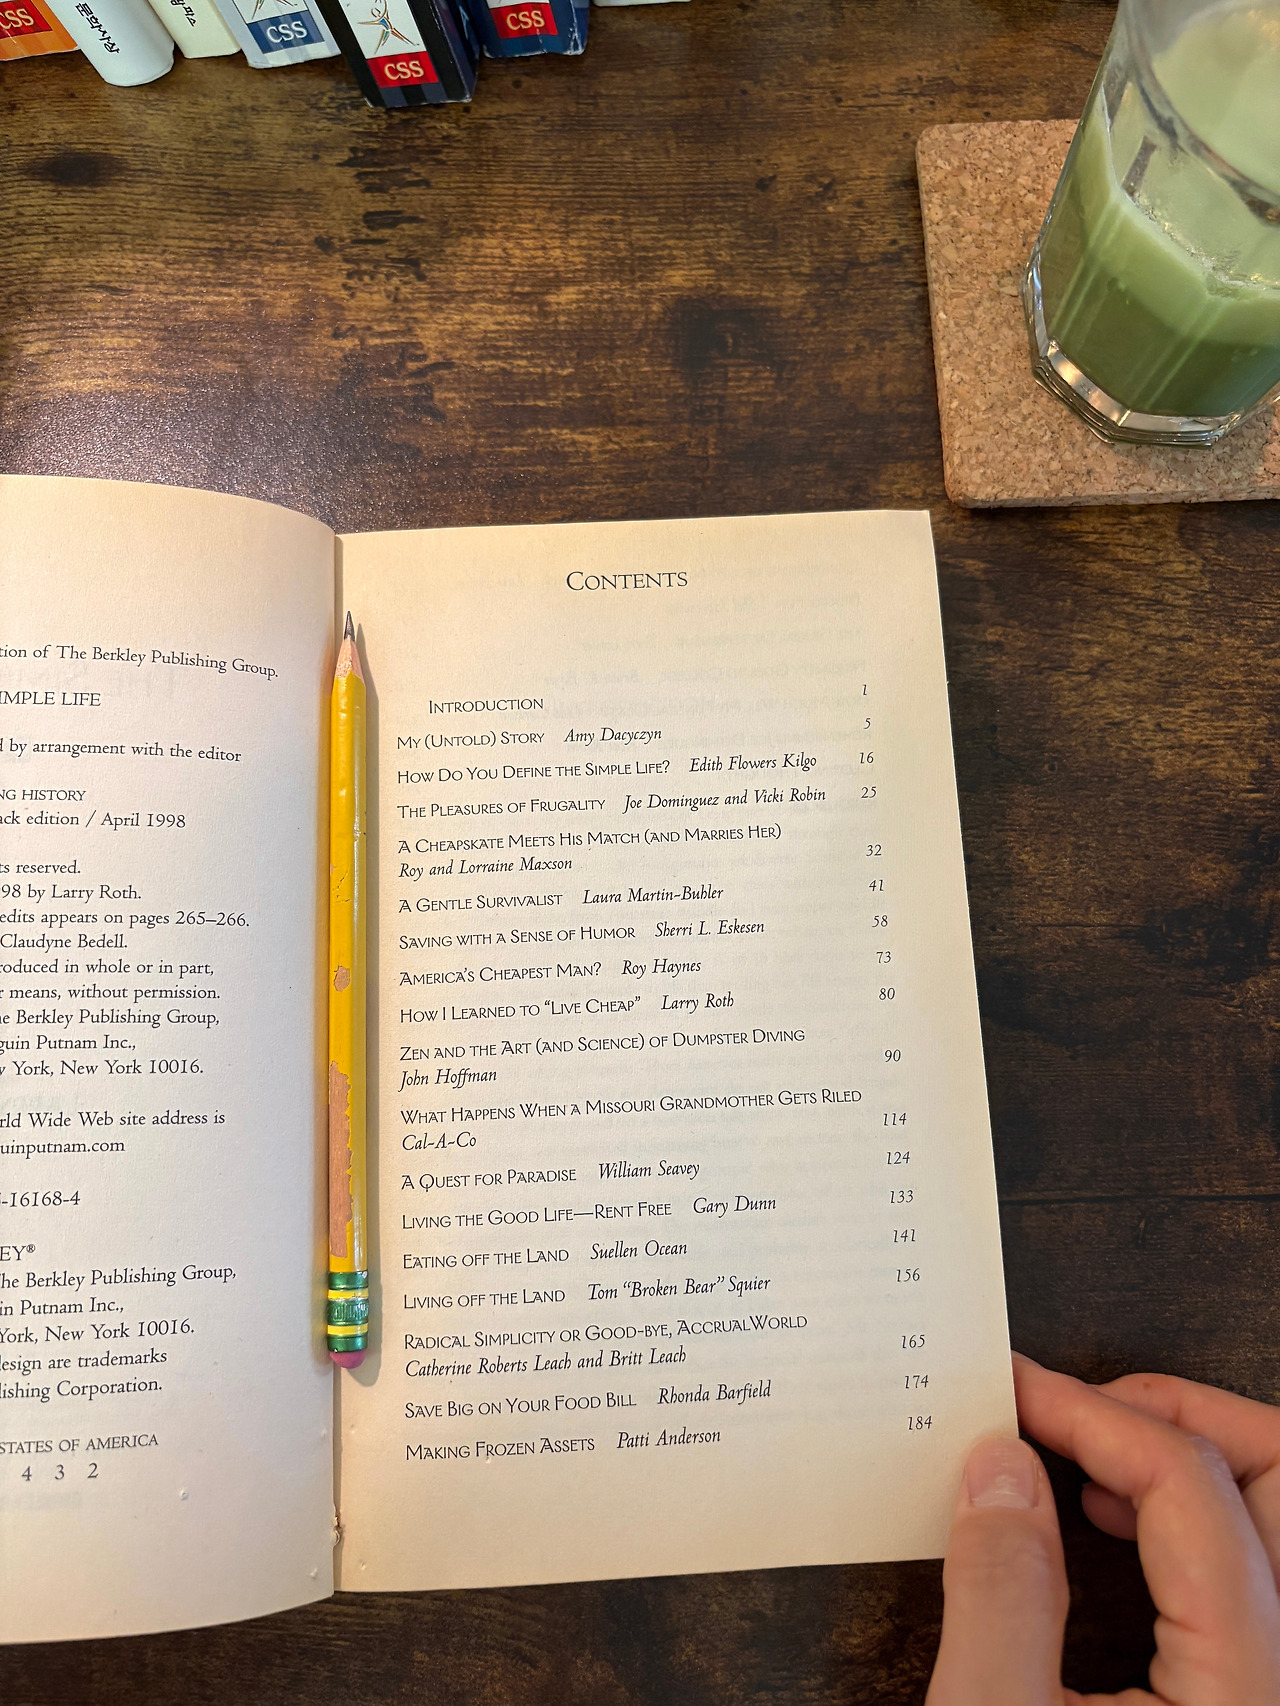 CSS
문학사상
CSS
CSS
CSS
tion of The Berkley Publishing Group.
IMPLE LIFE
d by arrangement with the editor
NG HISTORY
ack edition / April 1998
ts reserved.
98 by Larry Roth.
edits appears on pages 265–266.
Claudyne Bedell.
roduced in whole or in part,
r means, without permission.
he Berkley Publishing Group,
guin Putnam Inc.,
w York, New York 10016.
rld Wide Web site address is
uinputnam.com
-16168-4
EY®
The Berkley Publishing Group,
in Putnam Inc.,
York, New York 10016.
design are trademarks
lishing Corporation.
STATES OF AMERICA
4 3 2
CONTENTS
INTRODUCTION 1
MY (UNTOLD) STORY Amy Dacyczyn 5
HOW DO YOU DEFINE THE SIMPLE LIFE? Edith Flowers Kilgo 16
THE PLEASURES OF FRUGALITY Joe Dominguez and Vicki Robin 25
A CHEAPSKATE MEETS HIS MATCH (AND MARRIES HER)
Roy and Lorraine Maxson 32
A GENTLE SURVIVALIST Laura Martin-Buhler 41
SAVING WITH A SENSE OF HUMOR Sherri L. Eskesen 58
AMERICA'S CHEAPEST MAN? Roy Haynes 73
HOW I LEARNED TO "LIVE CHEAP" Larry Roth 80
ZEN AND THE ART (AND SCIENCE) OF DUMPSTER DIVING
John Hoffman 90
WHAT HAPPENS WHEN A MISSOURI GRANDMOTHER GETS RILED
Cal-A-Co 114
A QUEST FOR PARADISE William Seavey 124
LIVING THE GOOD LIFE—RENT FREE Gary Dunn 133
EATING OFF THE LAND Suellen Ocean 141
LIVING OFF THE LAND Tom "Broken Bear" Squier 156
RADICAL SIMPLICITY OR GOOD-BYE, ACCRUALWORLD
Catherine Roberts Leach and Britt Leach 165
SAVE BIG ON YOUR FOOD BILL Rhonda Barfield 174
MAKING FROZEN ASSETS Patti Anderson 184